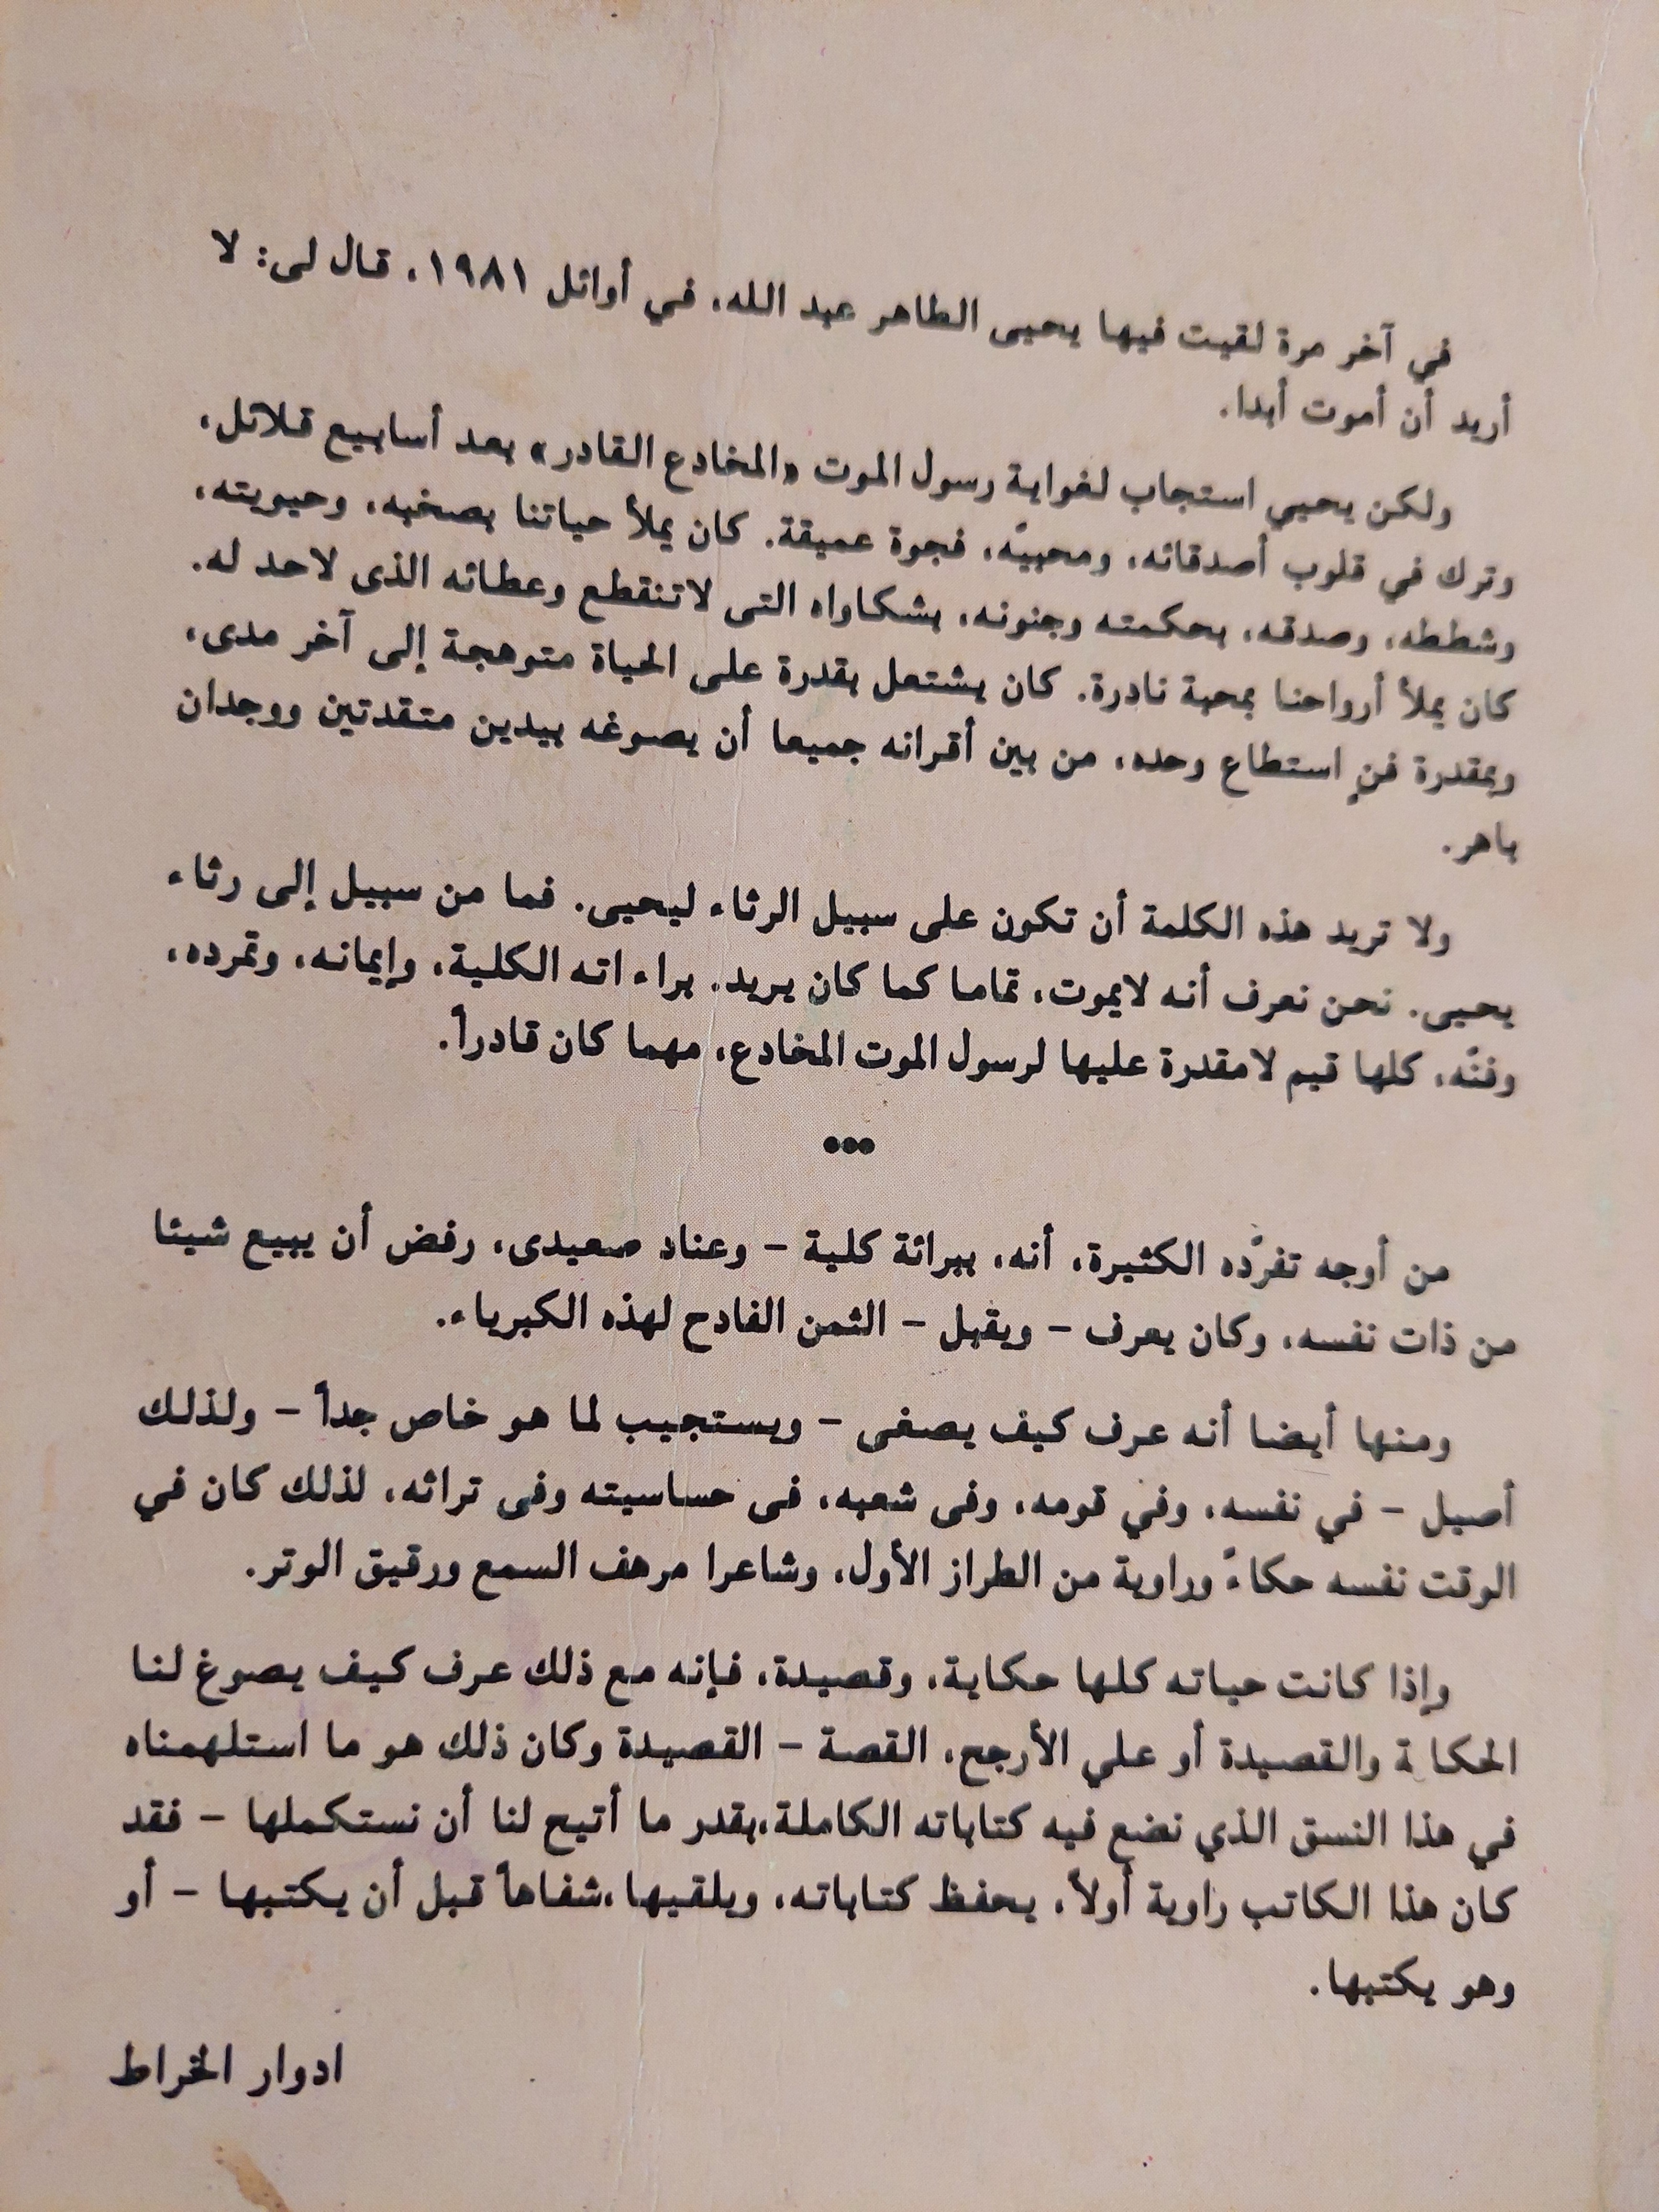 في آخر مرة لقيت فيها يحيى الطاهر عبد الله، في أوائل ١٩٨١، قال لى: لا
أريد أن أموت أبدا.
ولكن يحيي استجاب لغواية رسول الموت «المخادع القادر» بعد أسابيع قلائل،
وترك في قلوب أصدقائه، ومحبيّه، فجوة عميقة. كان يملأ حياتنا بصخبه، وحيويته،
وشططه، وصدقه، بحكمته وجنونه، بشكاواه التى لاتنقطع وعطائه الذى لاحد له.
كان يملأ أرواحنا بمحبة نادرة. كان يشتعل بقدرة على الحياة متوهجة إلى آخر مدى،
وبمقدرة فنٍ استطاع وحده، من بين أقرانه جميعا أن يصوغه بيدين متقدتين ووجدان
باهر.
ولا تريد هذه الكلمة أن تكون على سبيل الرثاء ليحيى. فما من سبيل إلى رثاء
يحيى. نحن نعرف أنه لايموت، تماما كما كان يريد. براءاته الكلية، وإيمانه، وتمرده،
وفنّه، كلها قيم لامقدرة عليها لرسول الموت المخادع، مهما كان قادراً.
•••
من أوجه تفرّده الكثيرة، أنه، ببرائة كلية - وعناد صعيدى، رفض أن يبيع شيئا
من ذات نفسه، وكان يعرف - ويقبل - الثمن الفادح لهذه الكبرياء.
ومنها أيضا أنه عرف كيف يصغى - ويستجيب لما هو خاص جداً - ولذلك
أصيل - في نفسه، وفي قومه، وفى شعبه، فى حساسيته وفى تراثه، لذلك كان في
الوقت نفسه حكاءً وراوية من الطراز الأول، وشاعرا مرهف السمع ورقيق الوتر.
وإذا كانت حياته كلها حكاية، وقصيدة، فإنه مع ذلك عرف كيف يصوغ لنا
الحكاية والقصيدة أو علي الأرجح، القصة - القصيدة وكان ذلك هو ما استلهمناه
في هذا النسق الذي نضع فيه كتاباته الكاملة،بقدر ما أتيح لنا أن نستكملها - فقد
كان هذا الكاتب راوية أولاً، يحفظ كتاباته، ويلقيها ،شفاهاً قبل أن يكتبها - أو
وهو يكتبها.
ادوار الخراط